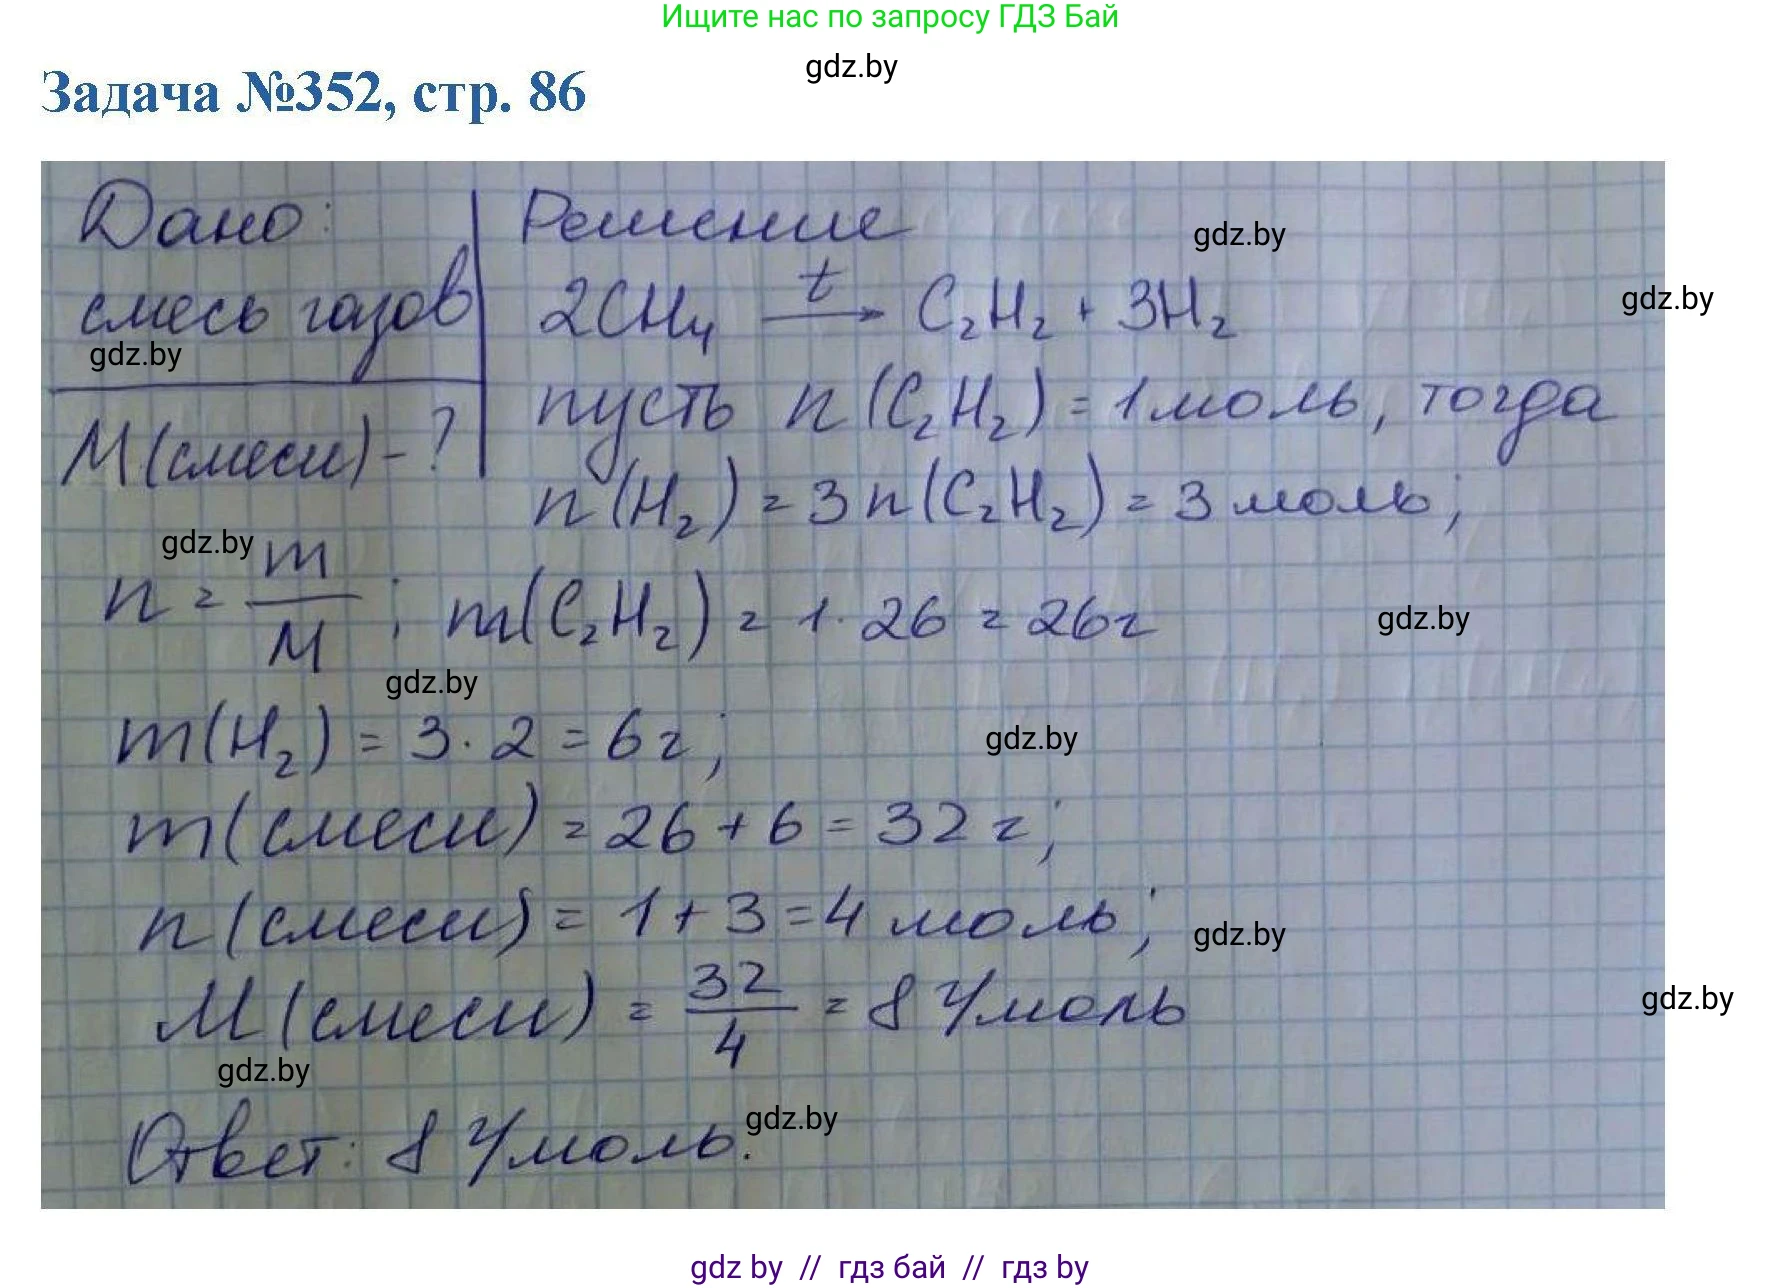 Ищите нас по запросу ГДЗ Бай
gdz.by
Задача №352, стр. 86
Дано:
Решение
gdz.by
смесь газов
2CH₄ —t→ C₂H₂ + 3H₂
gdz.by
gdz.by
M(смеси) - ?
пусть n(C₂H₂) = 1 моль, тогда
n(H₂) = 3n(C₂H₂) = 3 моль;
gdz.by
n = m/M; m(C₂H₂) = 1 · 26 = 26 г
gdz.by
gdz.by
m(H₂) = 3 · 2 = 6 г;
gdz.by
m(смеси) = 26 + 6 = 32 г;
n(смеси) = 1 + 3 = 4 моль;
gdz.by
M(смеси) = 32/4 = 8 г/моль
gdz.by
gdz.by
Ответ: 8 г/моль.
gdz.by
gdz by // гдз бай // гдз by